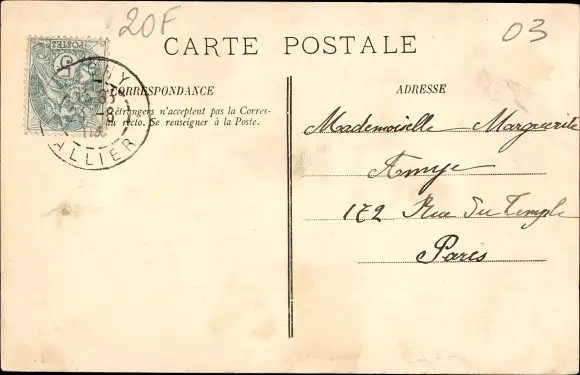 20F
03
CARTE POSTALE
POSTES
5
ALLIER
CORRESPONDANCE
étrangers n'acceptent pas la Corres-
au recto. Se renseigner à la Poste.
ADRESSE
Mademoiselle Marguerite
172 Rue Du Temple
Paris